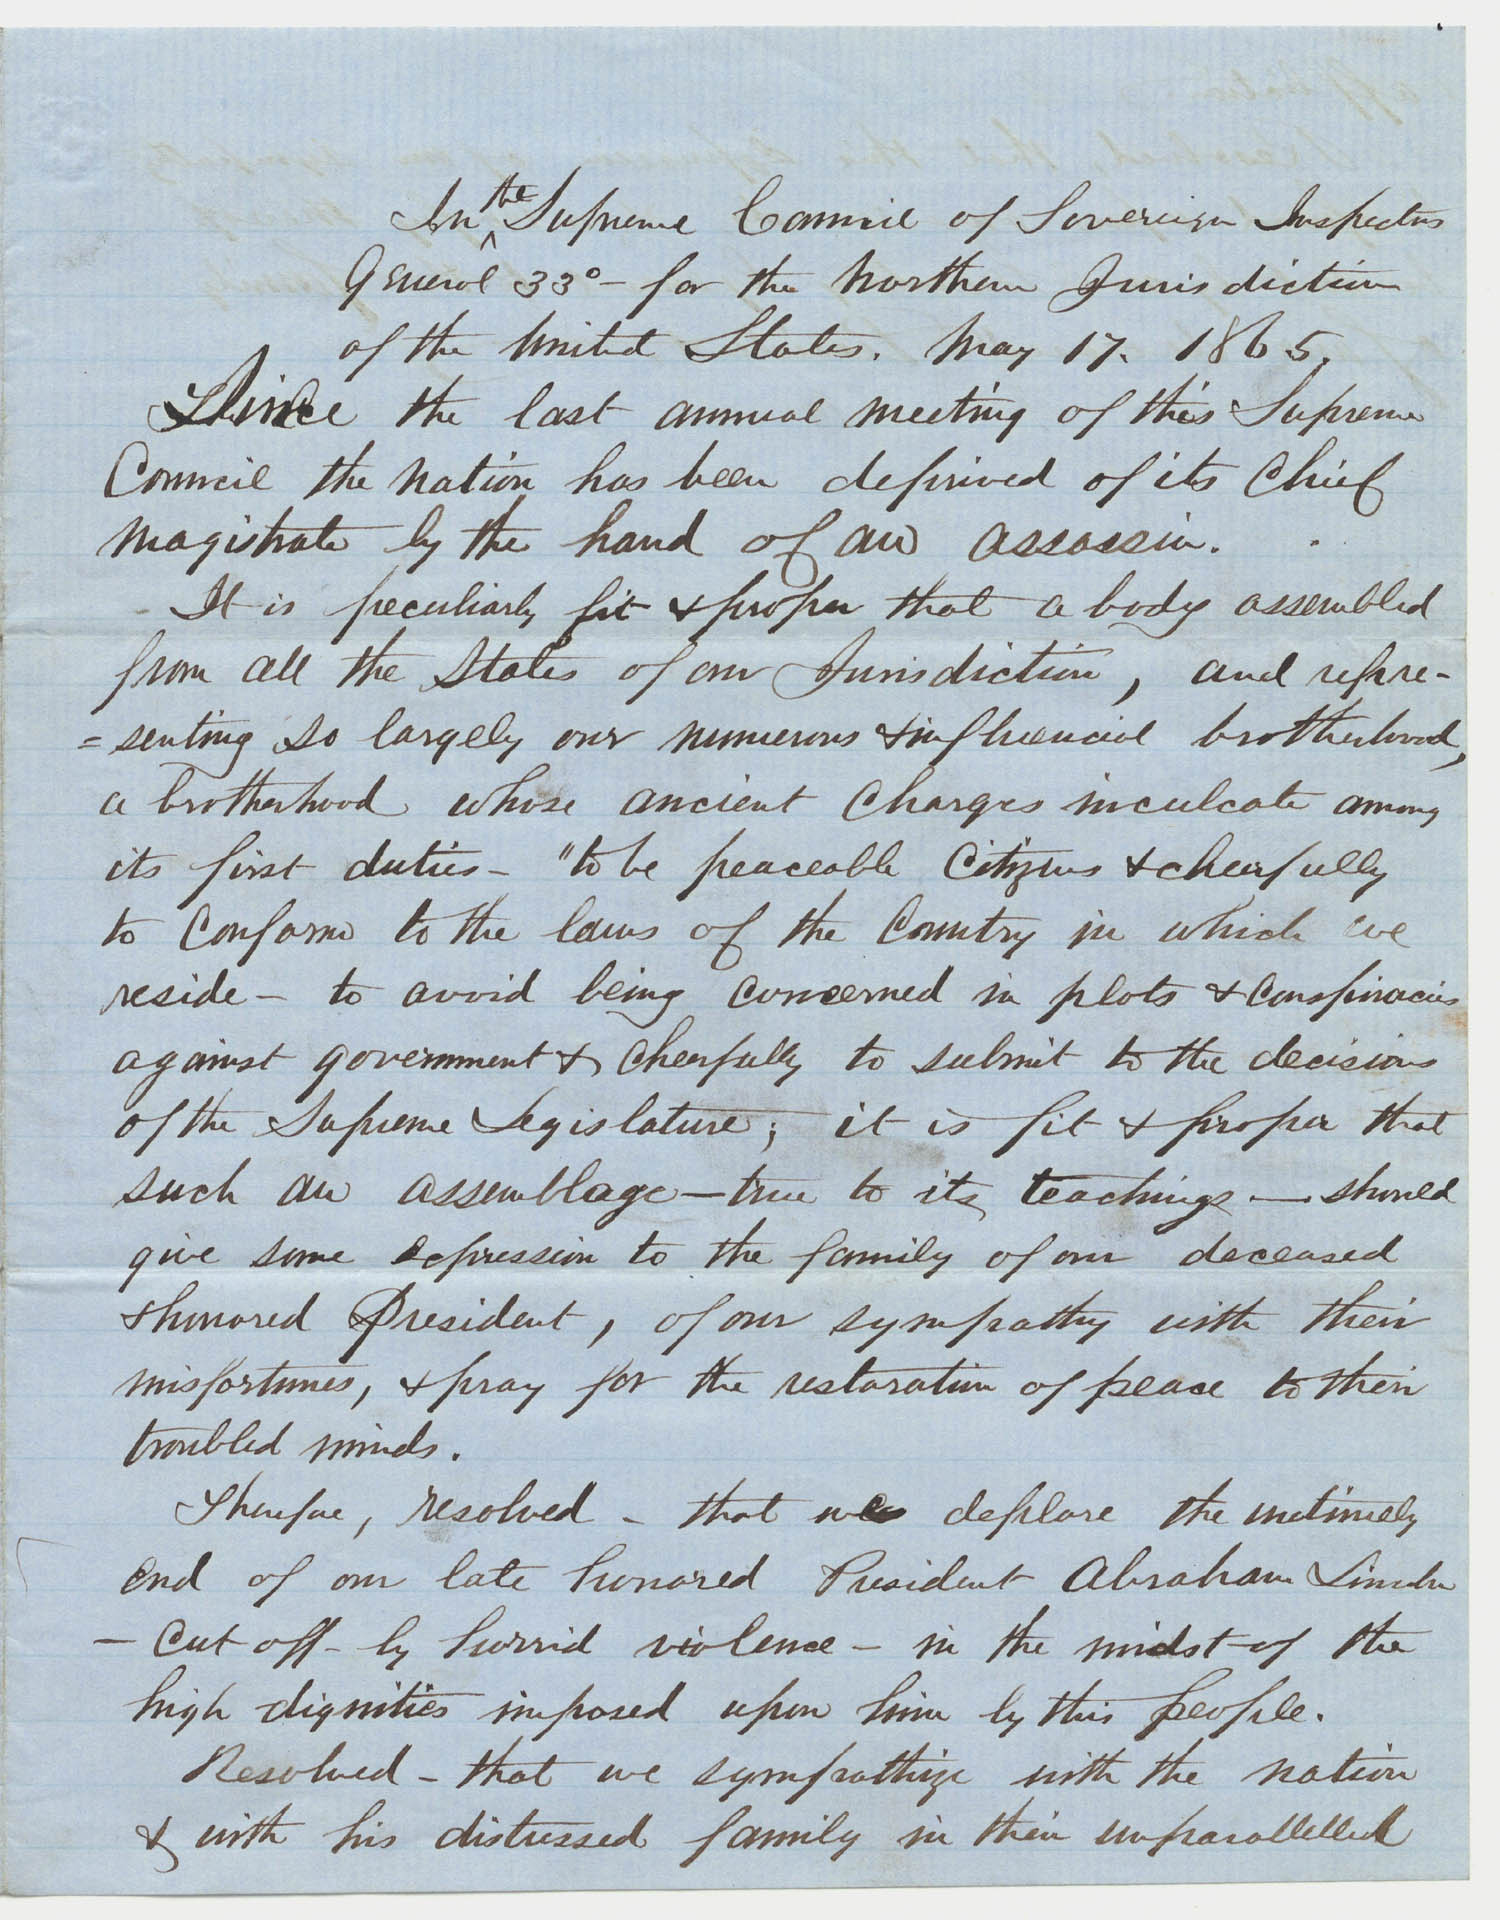 In the Supreme Council of Sovereign Inspectors
General 33° - for the Northern Jurisdiction
of the United States. May 17. 1865.
Since the last annual meeting of this Supreme
Council the nation has been deprived of its Chief
Magistrate by the hand of an assassin.
It is peculiarly fit & proper that a body assembled
from all the States of our Jurisdiction, and repre-
=senting so largely our numerous & influencial brotherhood,
a brotherhood whose ancient Charges inculcate among
its first duties - "to be peaceable Citizens & cheerfully
to Conform to the laws of the Country in which we
reside - to avoid being concerned in plots & Conspiracies
against government & cheerfully to submit to the decisions
of the Supreme Legislature; it is fit & proper that
such an assemblage - true to its teachings - should
give some expression to the family of our deceased
& honored President, of our sympathy with their
misfortunes, & pray for the restoration of peace to their
troubled minds.
Therefore, resolved - that we deplore the untimely
End of our late honored President Abraham Lincoln
- Cut off - by horrid violence - in the midst of the
high dignities imposed upon him by this people.
Resolved - that we sympathize with the nation
& with his distressed family in their unparallelled